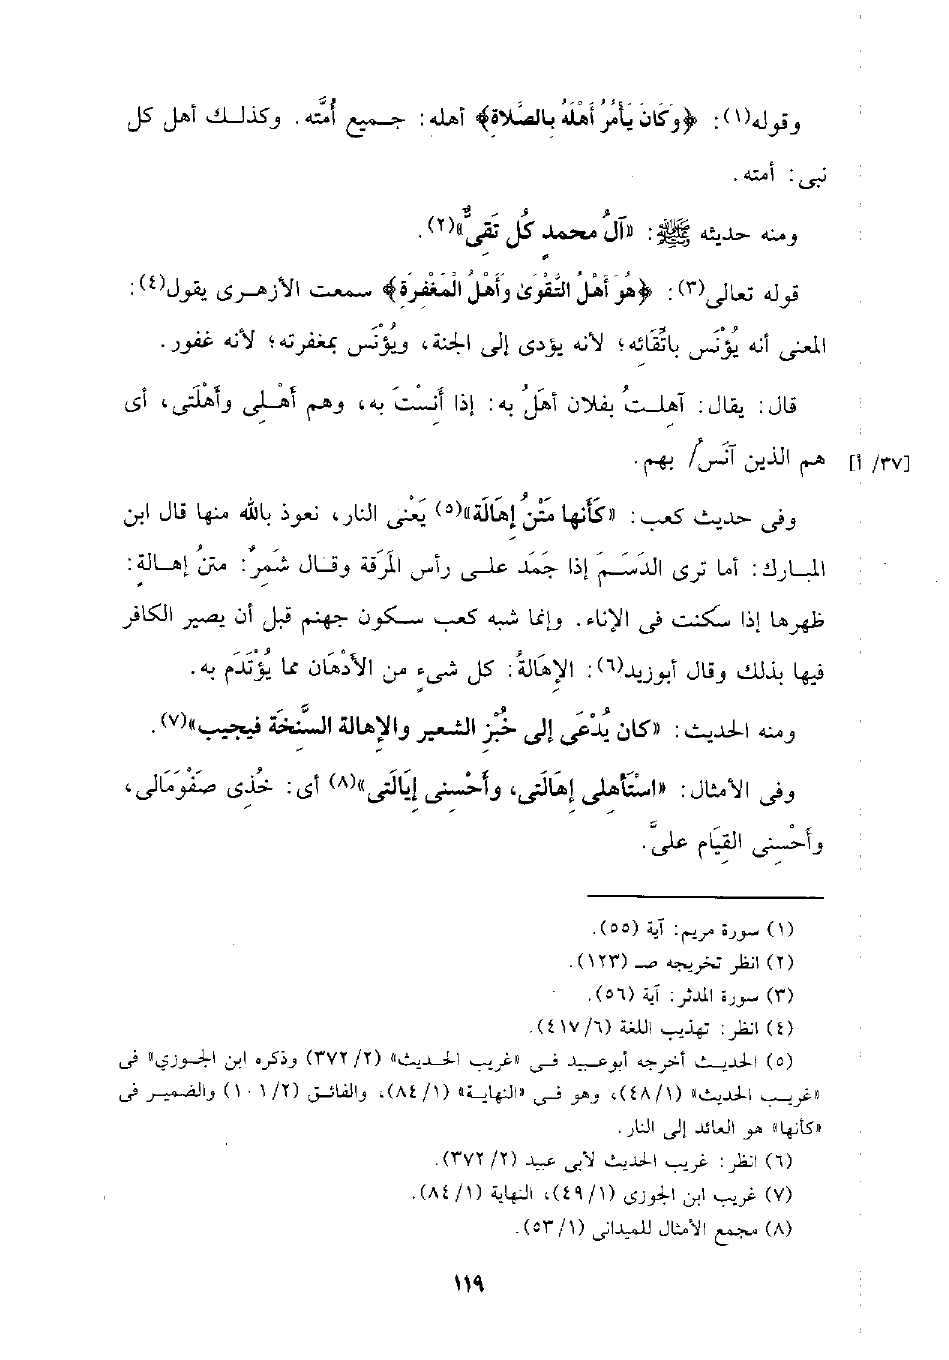 وقوله(١): ﴿وَكَانَ يَأْمُرُ أَهْلَهُ بالصَّلاة﴾ أهله: جميع أُمَّته. وكذلك أهل كل
نبى: أمته.
ومنه حديثه ﷺ: «آلُ محمدٍ كُل تَقِىٍّ»(٢).
قوله تعالى(٣): ﴿هُوَ أَهْلُ التَّقْوَىٰ وَأَهْلُ المَغْفِرَةِ﴾ سمعت الأزهرى يقول(٤):
المعنى أنه يُؤْنَس باتِّقَائِه؛ لأنه يؤدى إلى الجنة، ويُؤْنَس بمغفرته؛ لأنه غفور.
قال: يقال: آهلتُ بفلان أهَلُ به: إذا أَنِسْتَ به، وهم أَهْلِى وأَهْلَتى، أى
هم الذين آنَسُ/ بهم. [٣٧/ أ]
وفى حديث كعب: «كَأنها مَتْنُ إهَالَة»(٥) يَعْنِى النار، نعوذ بالله منها قال ابن
المبارك: أما ترى الدَسَمَ إذا جَمَد على رأس المَرَقة وقال شَمِرٌ: متنُ إهالةٍ:
ظهرها إذا سكنت فى الإناء. وإنما شبه كعب سكون جهنم قبل أن يصير الكافر
فيها بذلك وقال أبوزيد(٦): الإهَالةُ: كل شىءٍ من الأدْهَان مما يُؤْتَدَم به.
ومنه الحديث: «كان يُدْعَى إلى خُبْزِ الشعير والإهالة السَّنِخَة فيجيب»(٧).
وفى الأمثال: «اسْتَأهلى إهَالَتِى، وأَحْسِنى إيَالَتِى»(٨) أى: خُذِى صَفْوَمَالى،
وأَحْسِنِى القِيَام علىَّ.
(١) سورة مريم: آية (٥٥).
(٢) انظر تخريجه صـ (١٢٣).
(٣) سورة المدثر: آية (٥٦).
(٤) انظر: تهذيب اللغة (٤١٧/٦).
(٥) الحديث أخرجه أبوعبيد فى «غريب الحديث» (٣٧٢/٢) وذكره ابن الجوزي» فى
«غريب الحديث» (٤٨/١)، وهو فى «النهاية» (٨٤/١)، والفائق (١٠١/٢) والضمير فى
«كأنها» هو العائد إلى النار.
(٦) انظر: غريب الحديث لأبى عبيد (٣٧٢/٢).
(٧) غريب ابن الجوزى (٤٩/١)، النهاية (٨٤/١).
(٨) مجمع الأمثال للميدانى (٥٣/١).
١١٩